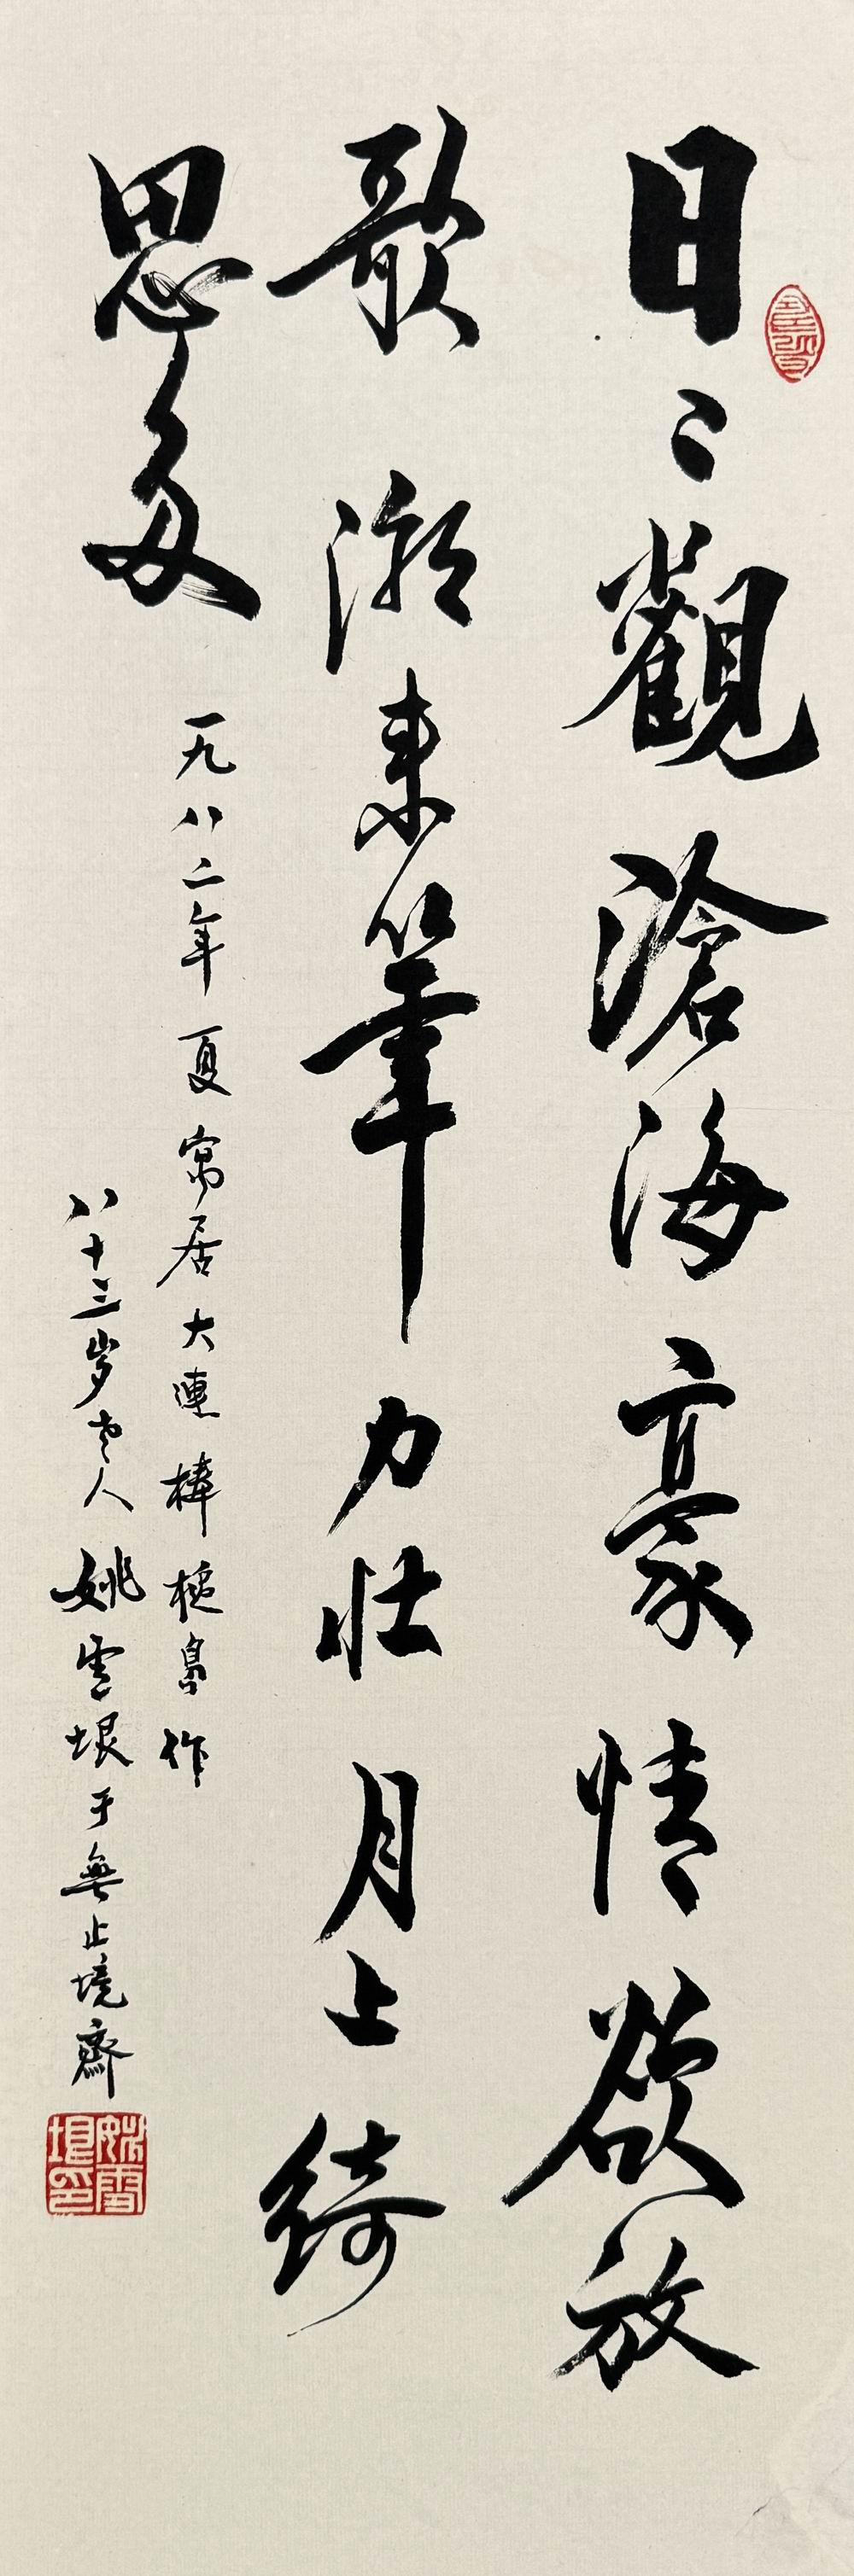 日〻觀滄海豪情欲放
歌潮来筆力壮月上綺
思多
一九八二年夏寓居大連棒槌島作
八十三岁老人姚雪垠于無止境齋
姚雪垠印